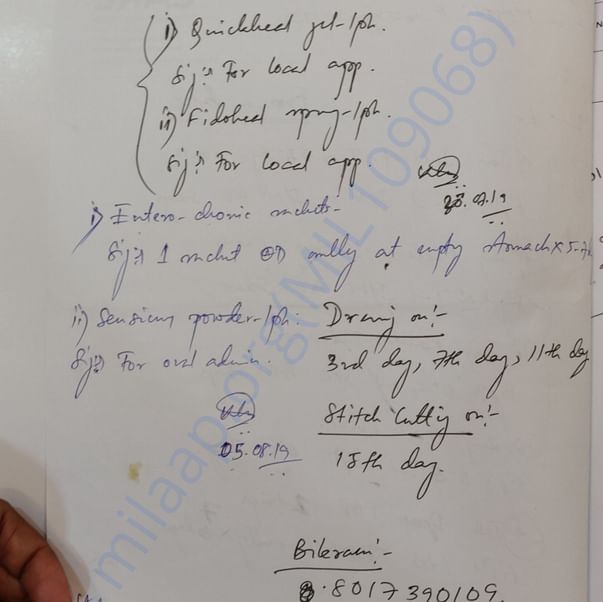 i) Quickheal gel-1ph.
Sig:- For local app.
ii) Fidoheal spray-1ph.
Sig:- For local app.
i) Entero-chronic sachets-
Sig:- 1 sachet OD orally at empty stomach x 5-7
ii) powder-1ph.
Sig:- For oral admin.
05.08.19
Dressing on:-
3rd day, 7th day, 11th day
Stitch Cutting on:-
15th day.
Bikram:-
8017390109.
milaap.org(MIL109068)